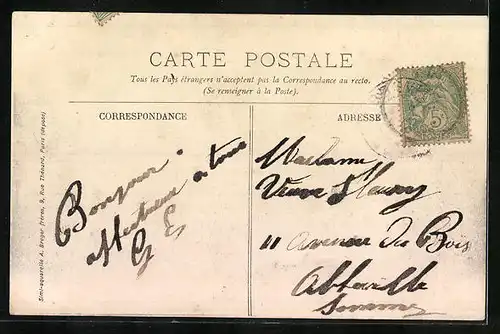 CARTE POSTALE
Tous les Pays étrangers n'acceptent pas la Correspondance au recto.
(Se renseigner à la Poste).
CORRESPONDANCE
ADRESSE
Bonjour
affectueux à tous
G E
Madame
Veuve Fleury
11 Avenue du Bois
Abbeville
Somme
5
Simi-aquarelle A. Breger frères, 9, Rue Thénard, Paris (déposé)